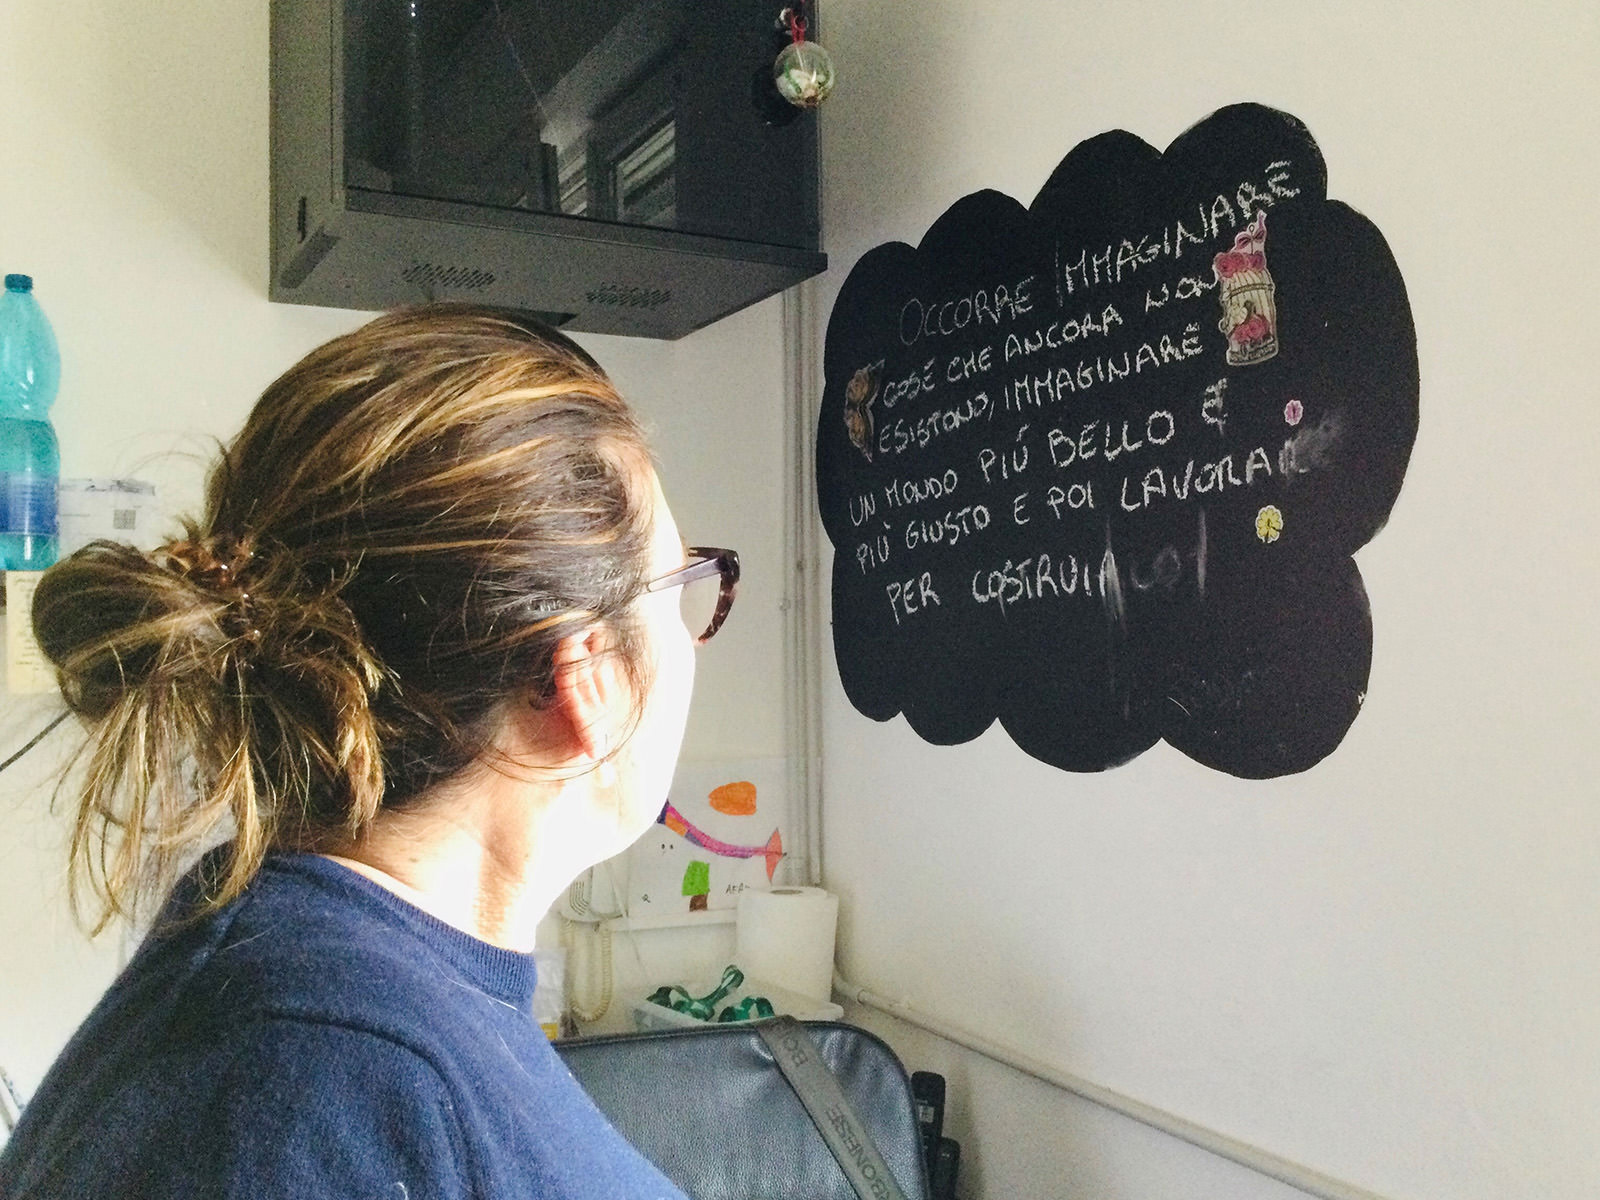 OCCORRE IMMAGINARE
COSE CHE ANCORA NON
ESISTONO, IMMAGINARE
UN MONDO PIÚ BELLO E
PIÙ GIUSTO E POI LAVORARE
PER COSTRUI